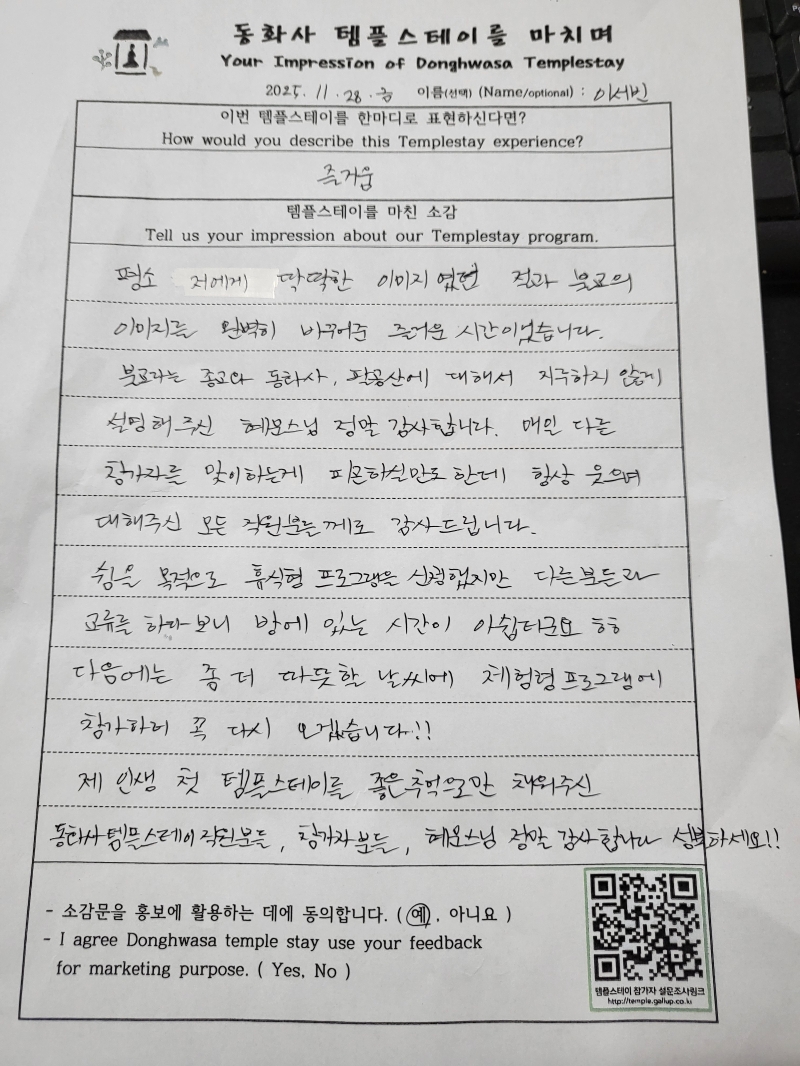 동화사 템플스테이를 마치며
Your Impression of Donghwasa Templestay
2025. 11. 28. 금 이름(선택) (Name/optional) : 이서빈
이번 템플스테이를 한마디로 표현하신다면?
How would you describe this Templestay experience?
즐거움
템플스테이를 마친 소감
Tell us your impression about our Templestay program.
평소 저에게 딱딱한 이미지였던 절과 불교의
이미지를 완벽히 바꾸어준 즐거운 시간이었습니다.
불교라는 종교와 동화사, 팔공산에 대해서 지루하지 않게
설명해주신 혜문스님 정말 감사합니다. 매일 다른
참가자를 맞이하는게 피곤하실만도 한데 항상 웃으며
대해주신 모든 직원분들께도 감사드립니다.
쉼을 목적으로 휴식형 프로그램을 신청했지만 다른분들과
교류를 하다보니 방에 있는 시간이 아쉽더군요 ㅎㅎ
다음에는 좀 더 따뜻할 날씨에 체험형 프로그램에
참가하러 꼭 다시 오겠습니다!!
제 인생 첫 템플스테이를 좋은 추억으로만 채워주신
동화사 템플스테이 직원분들, 참가자분들, 혜문스님 정말 감사합니다 성불하세요!!
- 소감문을 홍보에 활용하는 데에 동의합니다. ( 예, 아니요 )
- I agree Donghwasa temple stay use your feedback
for marketing purpose. ( Yes, No )
템플스테이 참가자 설문조사링크
http://temple.gallup.co.kr